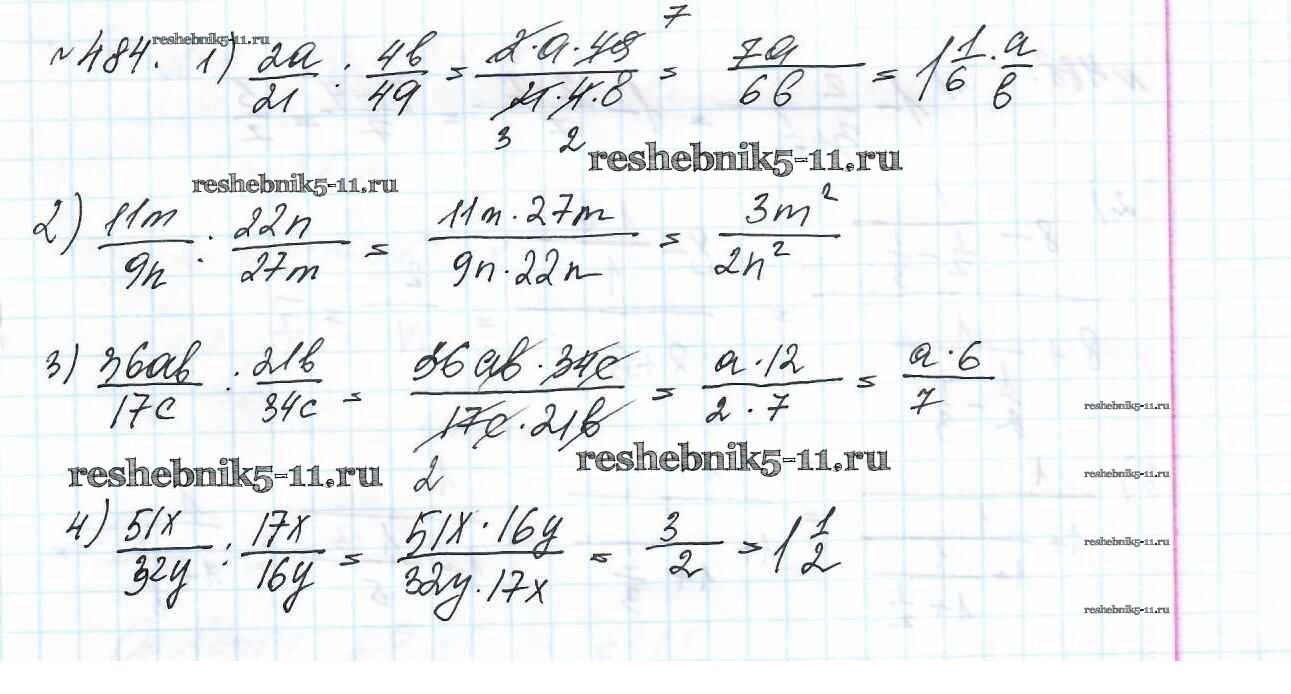 №484. 1) 2a/21 : 4b/49 = 2·a·49/21·4·b = 7a/6b = 1 1/6 · a/b
7
3 2
reshebnik5-11.ru
reshebnik5-11.ru
reshebnik5-11.ru
2) 11m/9n : 22n/27m = 11m·27m/9n·22n = 3m²/2n²
3) 36ab/17c : 21b/34c = 36ab·34c/17c·21b = a·12/2·7 = a·6/7
2
reshebnik5-11.ru
reshebnik5-11.ru
reshebnik5-11.ru
reshebnik5-11.ru
4) 51x/32y : 17x/16y = 51x·16y/32y·17x = 3/2 = 1 1/2
reshebnik5-11.ru
reshebnik5-11.ru